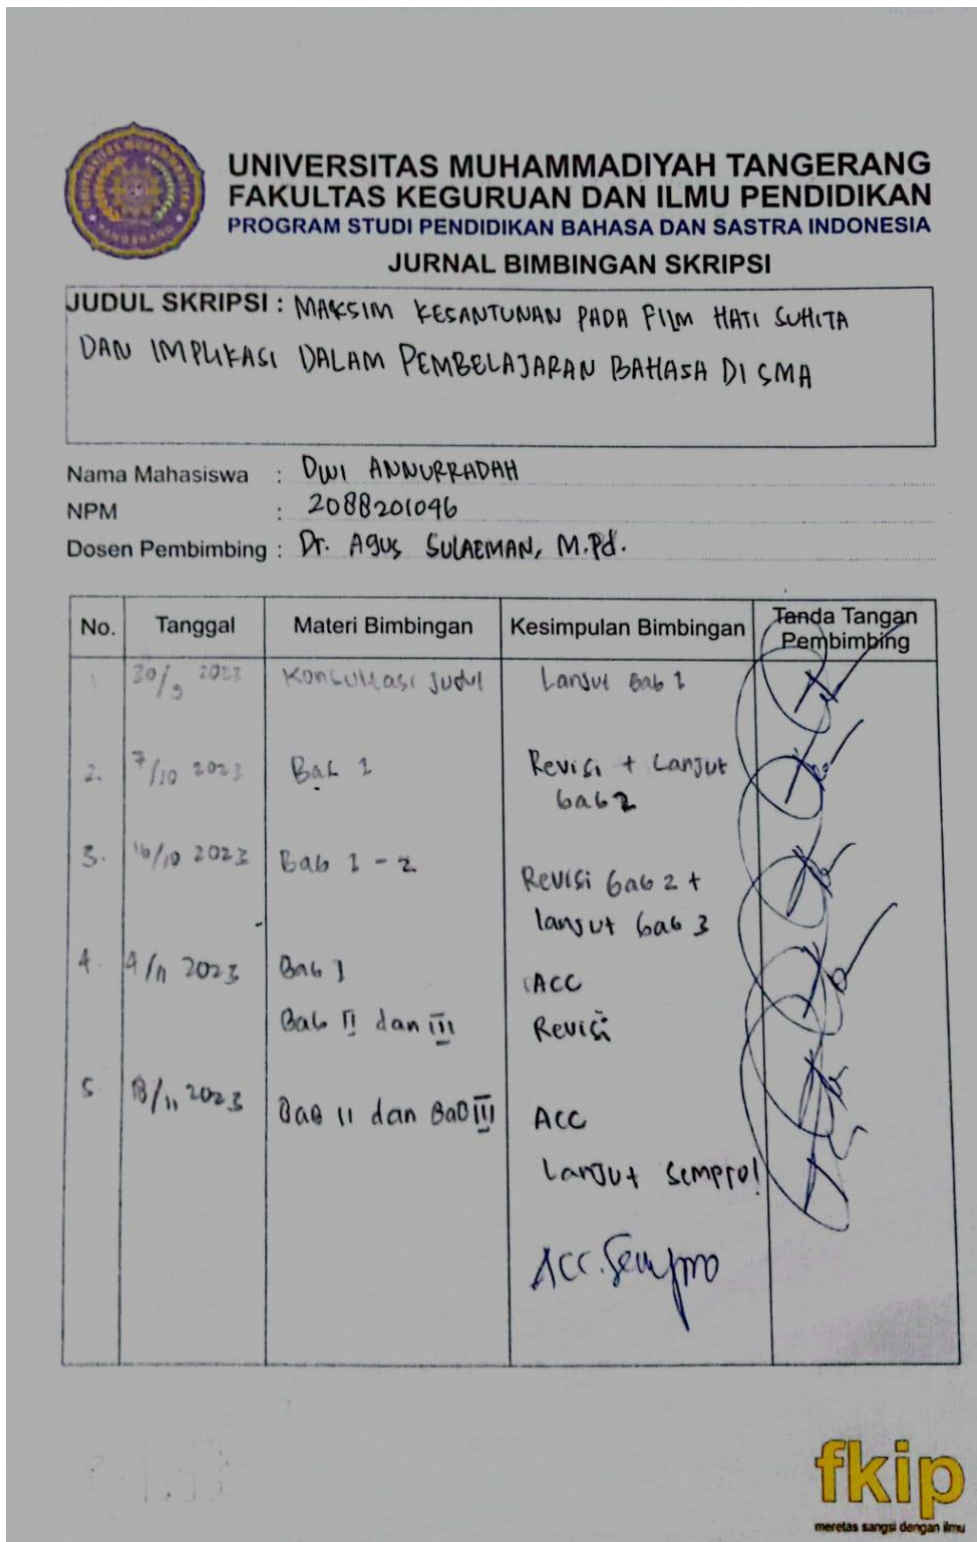 UNIVERSITAS MUHAMMADIYAH TANGERANG
FAKULTAS KEGURUAN DAN ILMU PENDIDIKAN
PROGRAM STUDI PENDIDIKAN BAHASA DAN SASTRA INDONESIA
JURNAL BIMBINGAN SKRIPSI
JUDUL SKRIPSI : MAKSIM KESANTUNAN PADA FILM HATI SUHITA
DAN IMPLIKASI DALAM PEMBELAJARAN BAHASA DI SMA
Nama Mahasiswa : DWI ANNURRADAH
NPM : 2088201096
Dosen Pembimbing : Dr. Agus SULAEMAN, M.Pd.
No. Tanggal Materi Bimbingan Kesimpulan Bimbingan Tanda Tangan Pembimbing
1. 30/9 2023 Konsultasi Judul Lanjut Bab 1
2. 7/10 2023 Bab 1 Revisi + Lanjut
bab 2
3. 16/10 2023 Bab 1 - 2 Revisi bab 2 +
lanjut bab 3
4. 4/11 2023 Bab 1 ACC
Bab II dan III Revisi
5 18/11 2023 BaB II dan BaB III ACC
Lanjut sempro!
Acc. Sempro
fkip
meretas sangsi dengan ilmu